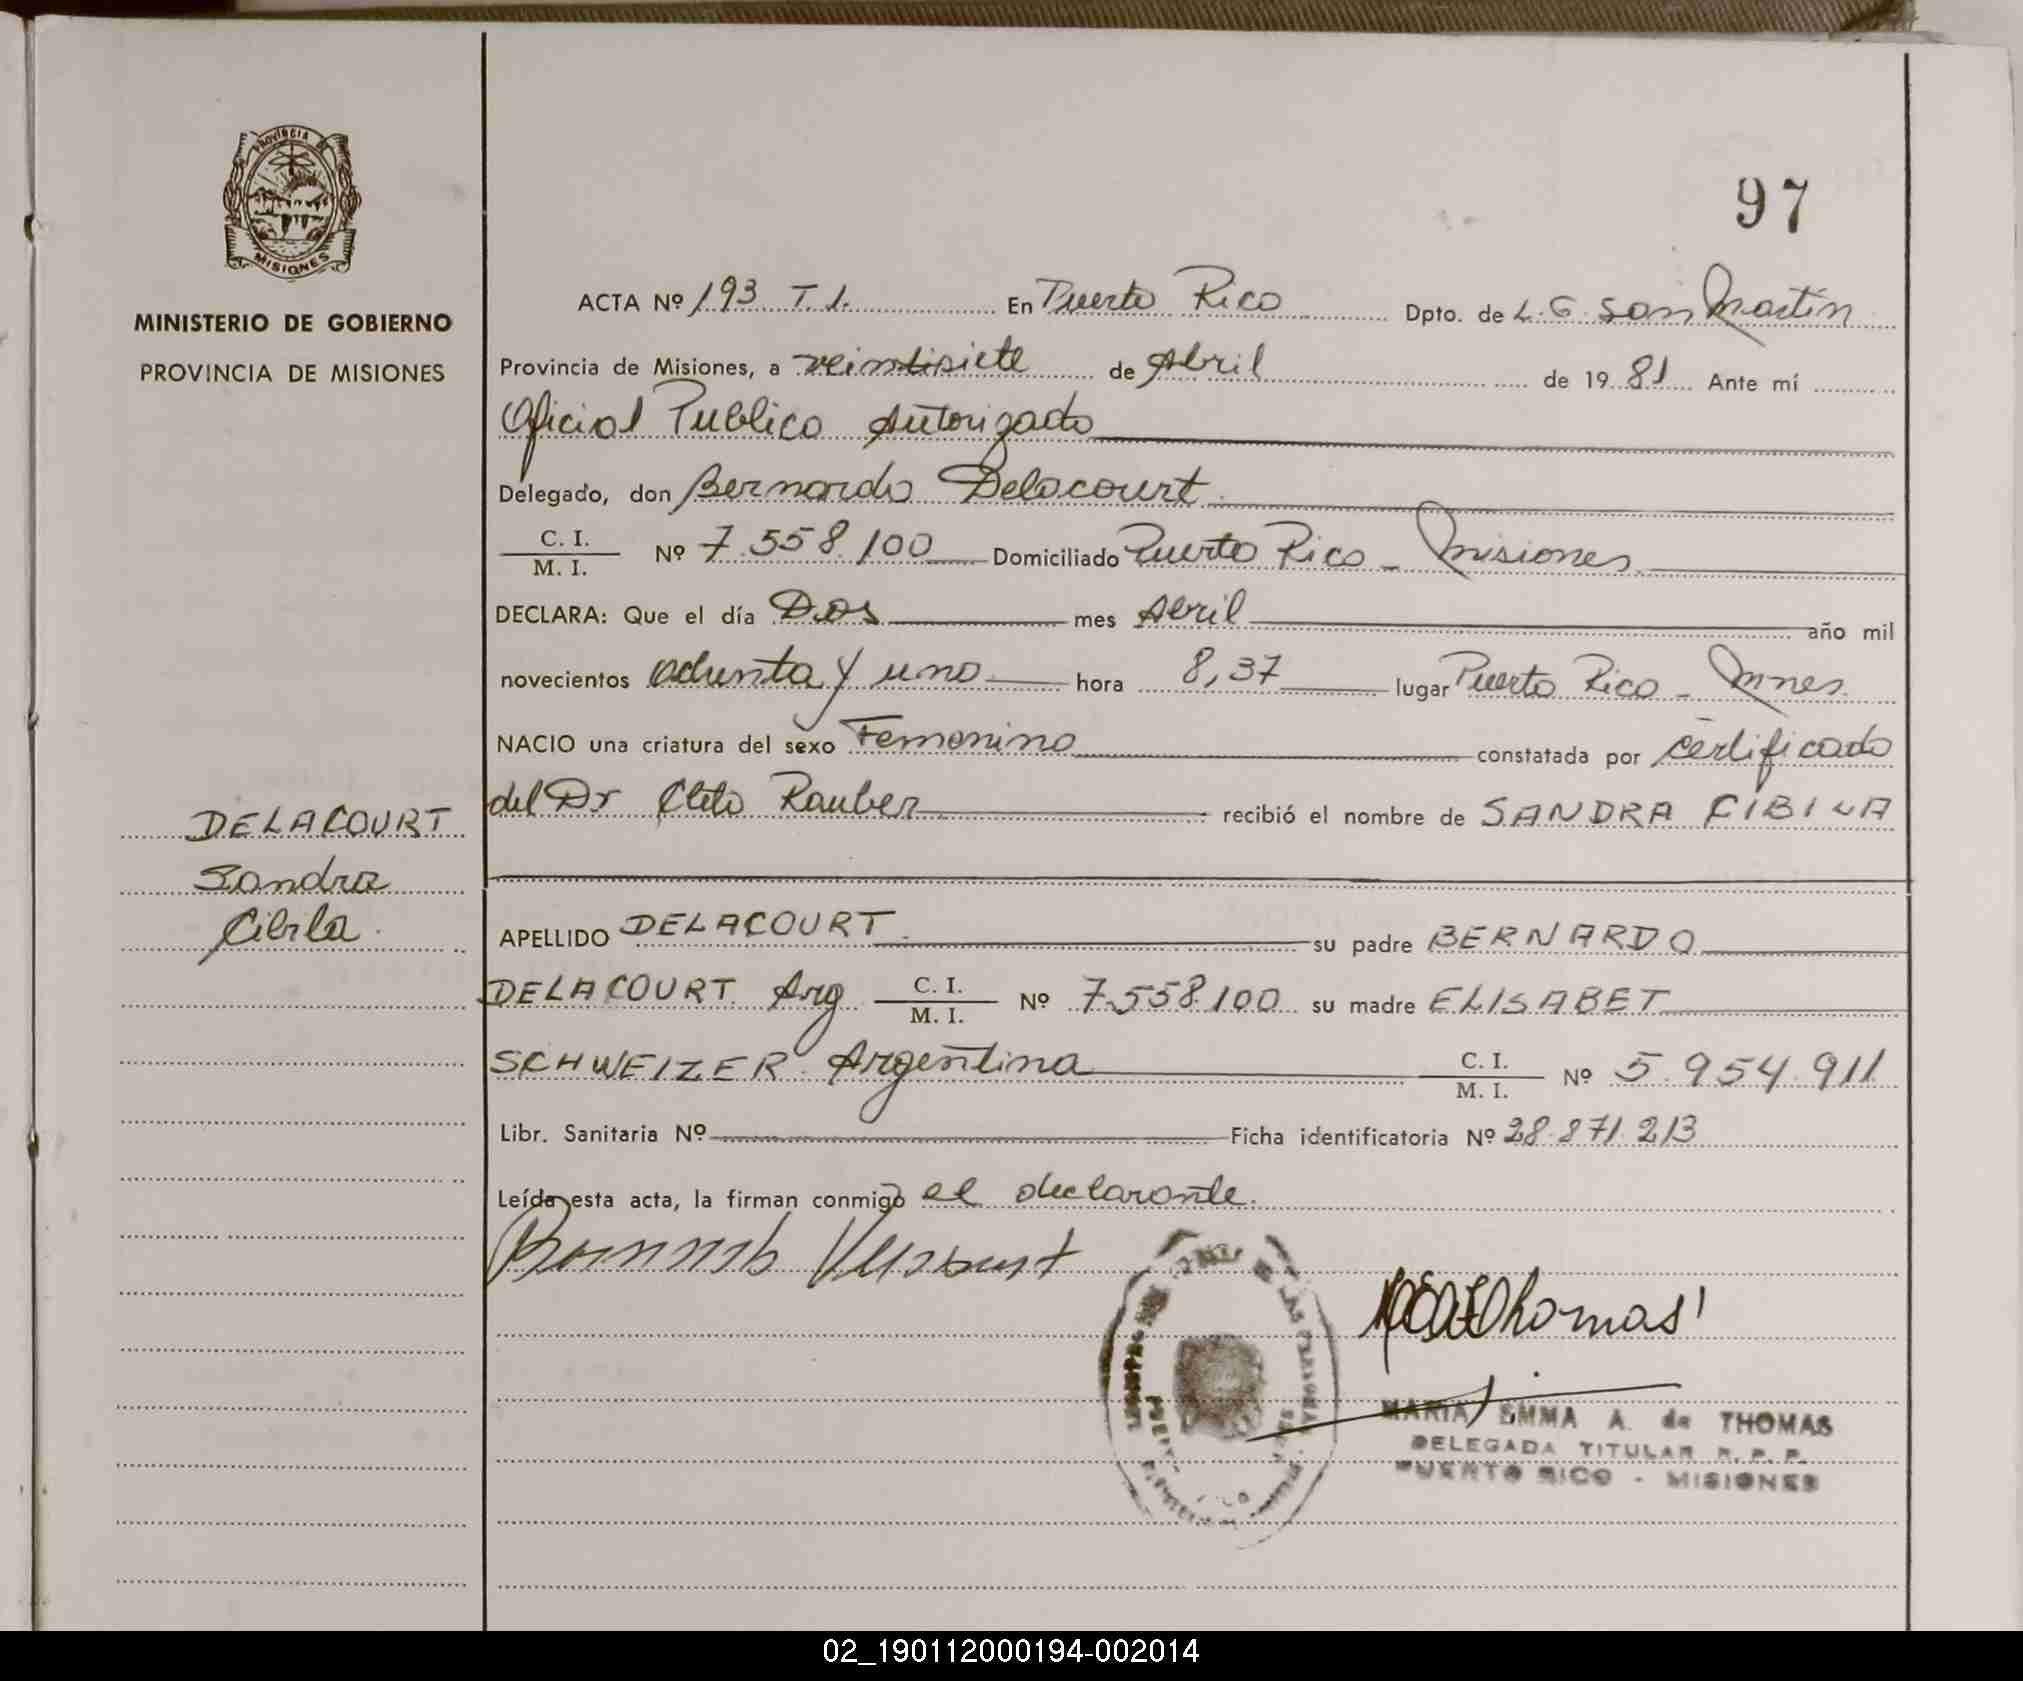 97
PROVINCIA DE
MISIONES
MINISTERIO DE GOBIERNO
PROVINCIA DE MISIONES
ACTA Nº 193 T. I. En Puerto Rico Dpto. de L. G. San Martín
Provincia de Misiones, a veintisiete de Abril de 1981 Ante mí
Oficial Publico Autorizado
Delegado, don Bernardo Delacourt
C. I.
M. I. Nº 7.558.100 Domiciliado Puerto Rico - Misiones
DECLARA: Que el día Dos mes Abril año mil
novecientos ochenta y uno hora 8,37 lugar Puerto Rico - Mnes.
NACIO una criatura del sexo Femenino constatada por certificado
del Dr Cleto Rauber recibió el nombre de SANDRA CIBILA
DELACOURT
Sandra
Cibila.
APELLIDO DELACOURT. su padre BERNARDO
DELACOURT Arg C. I.
M. I. Nº 7.558.100 su madre ELISABET
SCHWEIZER. Argentina C. I.
M. I. Nº 5.954.911
Libr. Sanitaria Nº Ficha identificatoria Nº 28.871.213
Leída esta acta, la firman conmigo el declarante.
Thomas
MARIA EMMA A. de THOMAS
DELEGADA TITULAR R. P. P.
PUERTO RICO - MISIONES
02_190112000194-002014